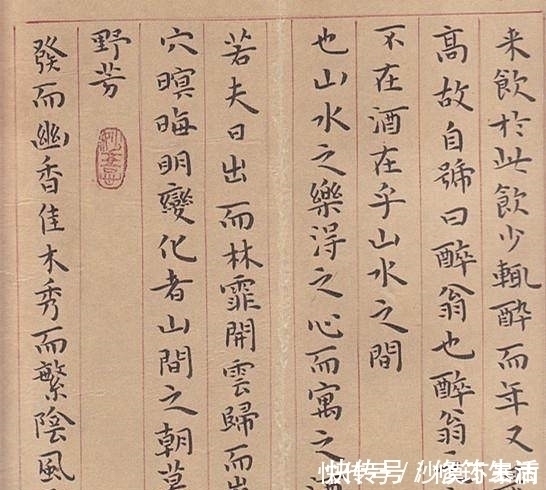 来飲於此飲少輒醉而年又
高故自號曰醉翁也醉翁
不在酒在乎山水之間
也山水之樂得之心而寓之
若夫日出而林霏開雲歸而
穴暝晦明變化者山間之朝
野芳
發而幽香佳木秀而繁陰風
快转号/